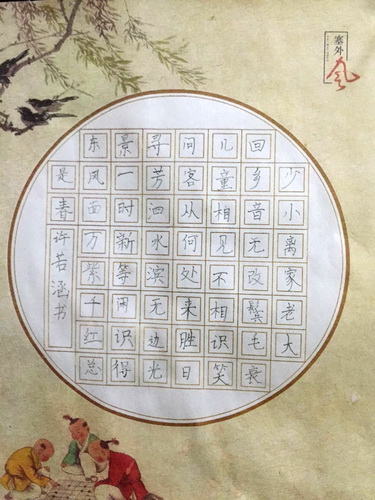 塞外风
少小离家老大
回乡音无改鬓毛衰
儿童相见不相识笑
问客从何处来胜日
寻芳泗水滨无边光
景一时新等闲识得
东风面万紫千红总
是春
许若涵书